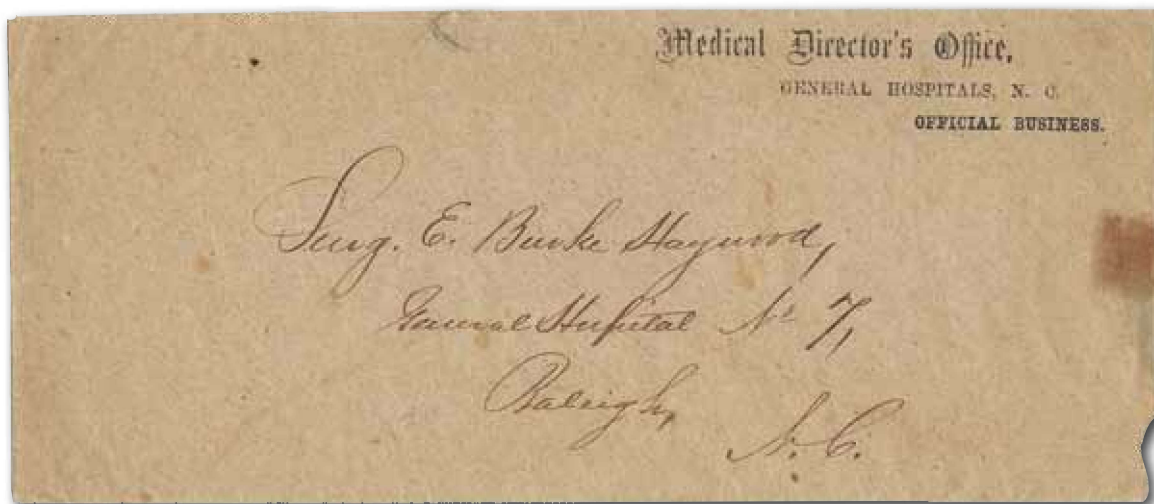 Medical Director's Office,
GENERAL HOSPITALS, N. C.
OFFICIAL BUSINESS.
Surg. E. Burke Haywood,
General Hospital No 7,
Raleigh,
N. C.